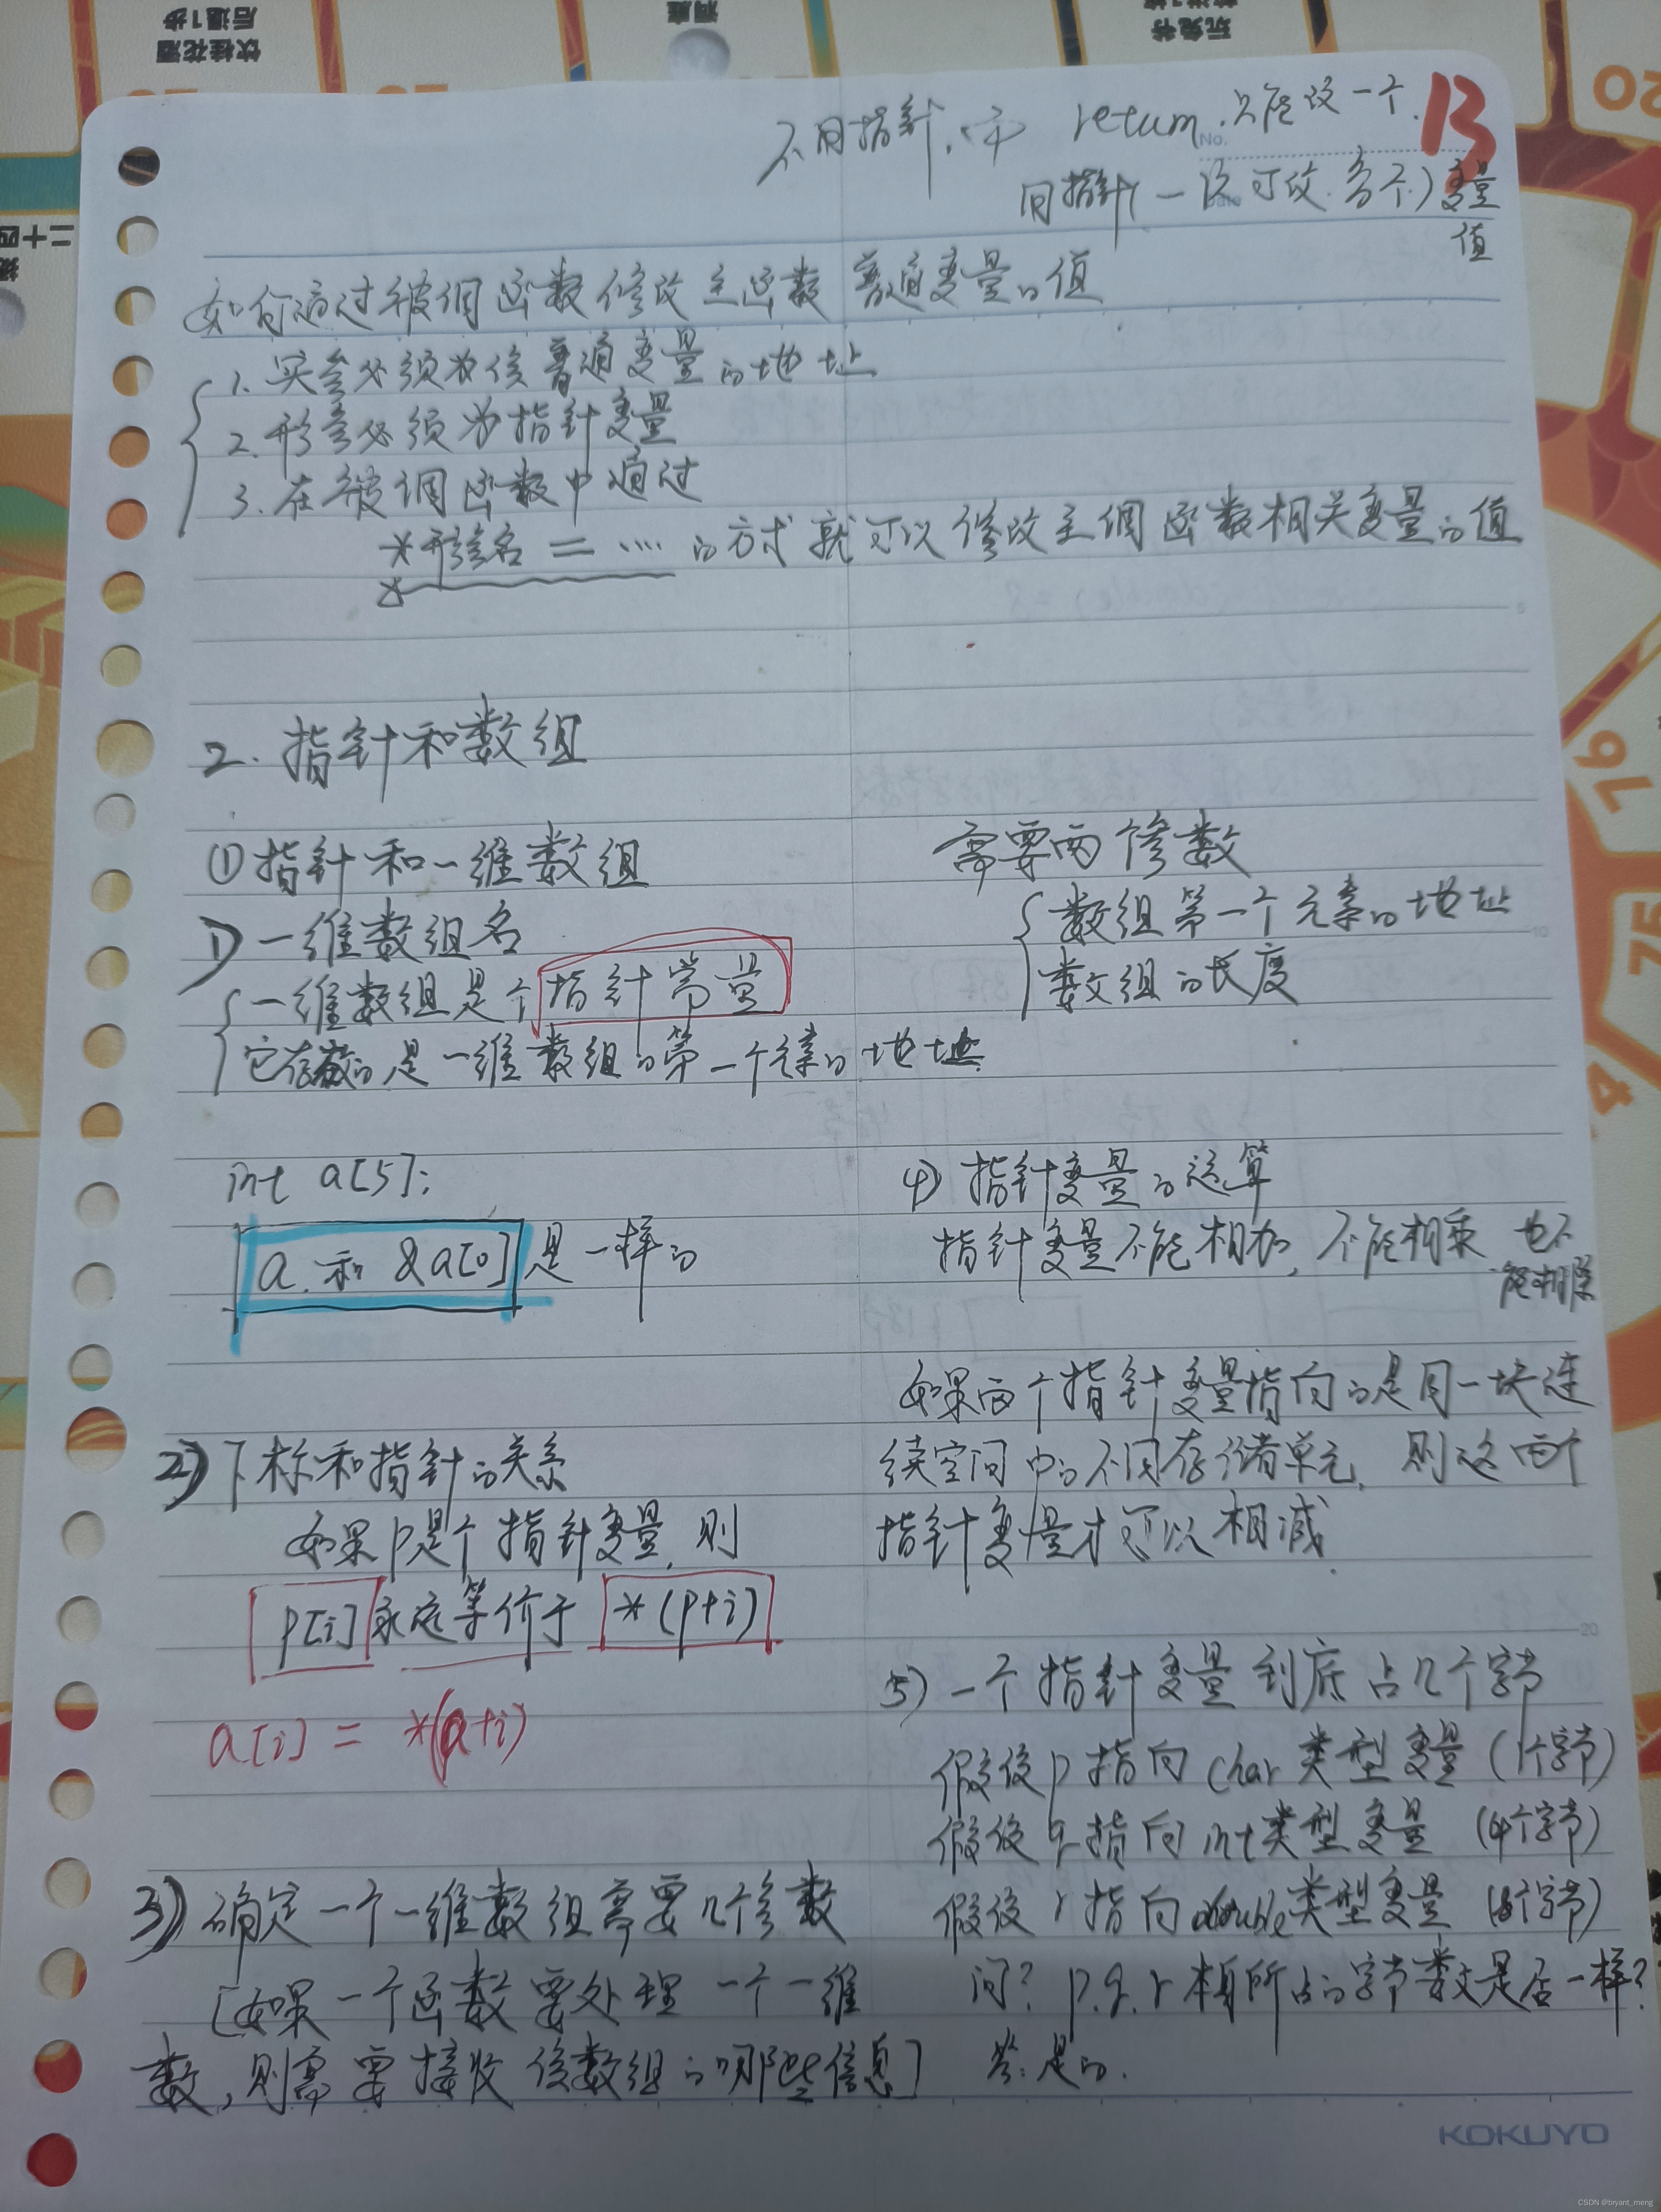 不用指针,
return 只能改一个.
13
No.
用指针(一次可改多个)变量
值
如何通过被调函数修改主函数普通变量的值
1. 实参必须为该普通变量的地址
2. 形参必须为指针变量
3. 在被调函数中通过
*形参名 = ....的方式就可以修改主调函数相关变量的值
2. 指针和数组
①指针和一维数组
1)一维数组名
一维数组是个指针常量
它存放的是一维数组的第一个元素的地址
int a[5];
a 和 &a[0] 是一样的
2)下标和指针的关系
如果p是个指针变量, 则
p[i] 永远等价于 *(p+i)
a[i] = *(a+i)
3)确定一个一维数组需要几个参数
[如果一个函数要处理一个一维
数,则需要接收该数组的哪些信息]
需要两个参数
数组第一个元素的地址
数组的长度
4)指针变量的运算
指针变量不能相加, 不能相乘 也不
能相除
如果两个指针变量指向的是同一块连
续空间中的不同存储单元, 则这两个
指针变量才可以相减
5)一个指针变量到底占几个字节
假设p指向char类型变量(1个字节)
假设q指向int类型变量(4个字节)
假设r指向double类型变量(8个字节)
问? p.q.r本身所占的字节数是否一样?
答:是的.
KOKUYO
饮桂花酒
后退1步
20
76
75
4
CSDN @bryant_meng